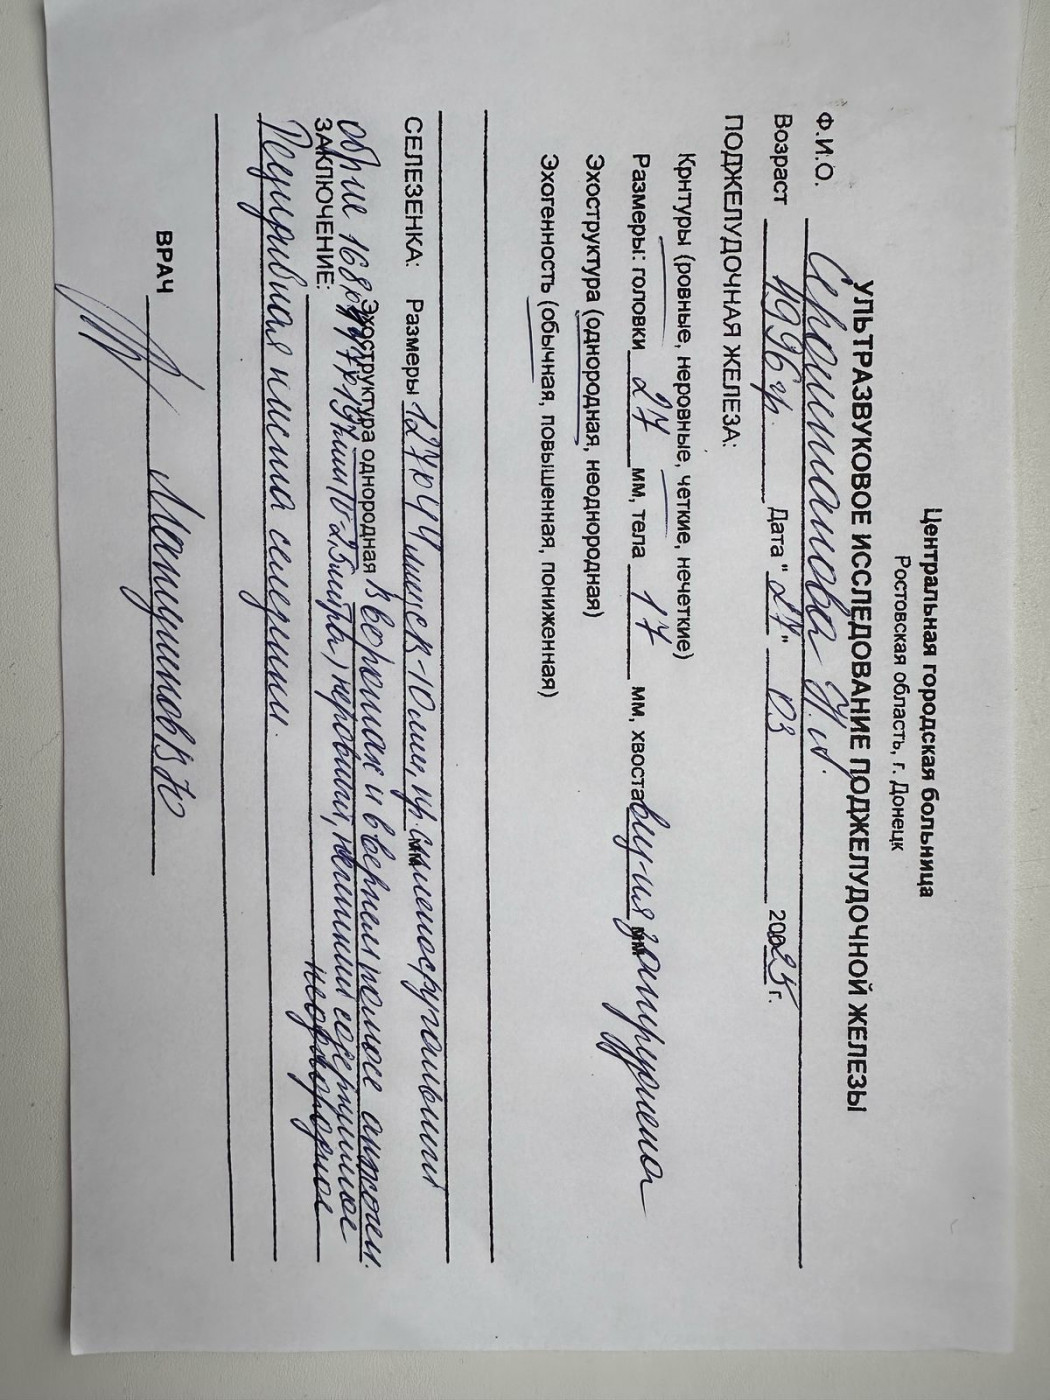 Центральная городская больница
Ростовская область, г. Донецк
УЛЬТРАЗВУКОВОЕ ИССЛЕДОВАНИЕ ПОДЖЕЛУДОЧНОЙ ЖЕЛЕЗЫ
Ф.И.О.
Возраст 1996 гр. Дата "27" 03 20025 г.
ПОДЖЕЛУДОЧНАЯ ЖЕЛЕЗА:
Крнтуры (ровные, неровные, четкие, нечеткие)
Размеры: головки 27 мм, тела 17 мм, хвоста мм
Эхоструктура (однородная, неоднородная)
Эхогенность (обычная, повышенная, пониженная)
СЕЛЕЗЕНКА: Размеры 127х44 мм, мм
Эхоструктура однородная В воротах и верхнем полюсе анэхоген.
обр-ие неровными, содержимое
ЗАКЛЮЧЕНИЕ: неоднородное
Рецидивная киста селезенки.
ВРАЧ